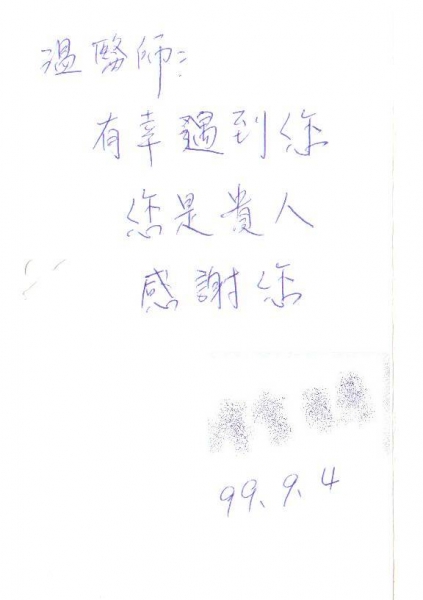 溫醫師：
有幸遇到您
您是貴人
感謝您
99.9.4